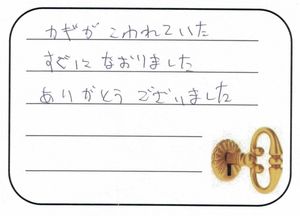 カギが こわれていた
すぐに なおりました
ありがとう ございました